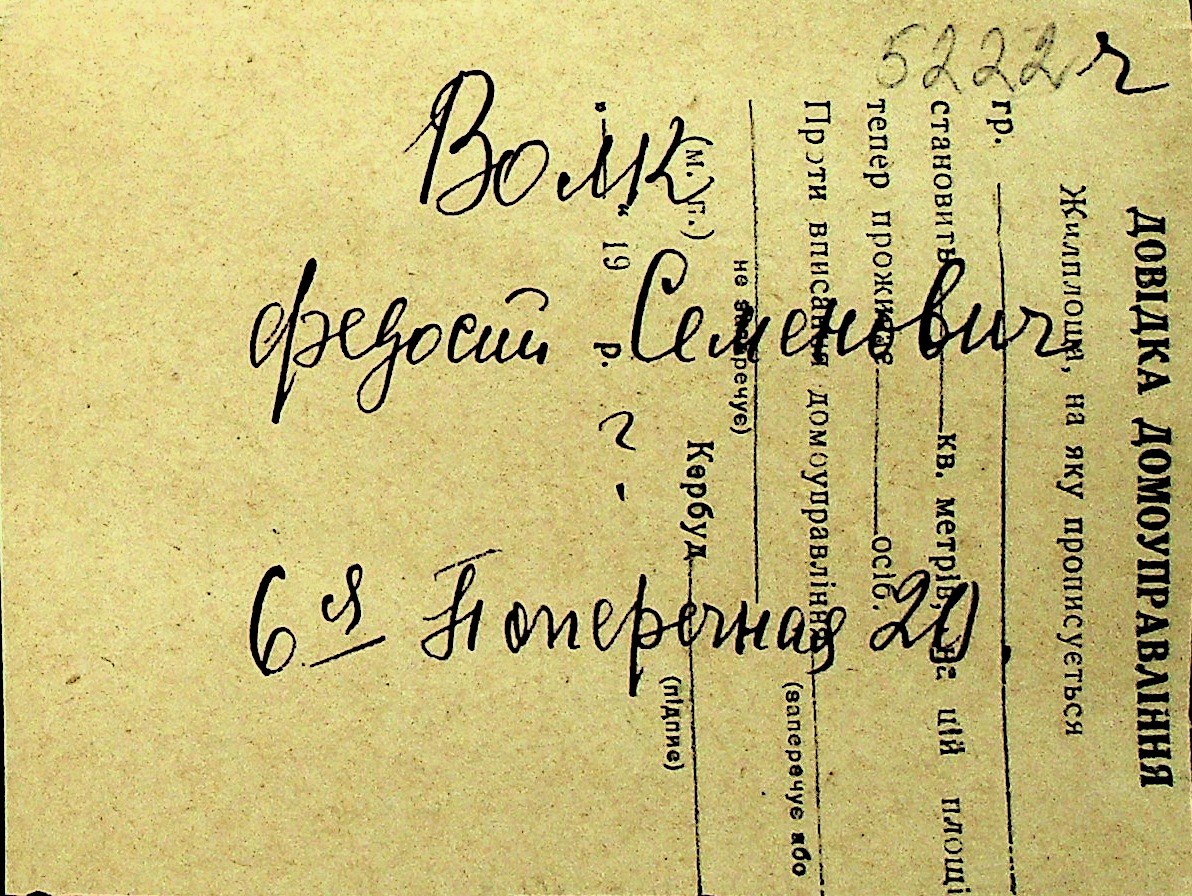 5222 ч
Волк
Федосий Семенович
?
6 я Поперечная 20.
ДОВІДКА ДОМОУПРАВЛІННЯ
Жилплоща, на яку прописується
гр.
становить кв. метрів, на цій площі
тепер проживає осіб.
Проти вписання домоуправління
(заперечує або
не заперечує)
Кербуд
(підпис)
(м. п.)
" " 19 р.